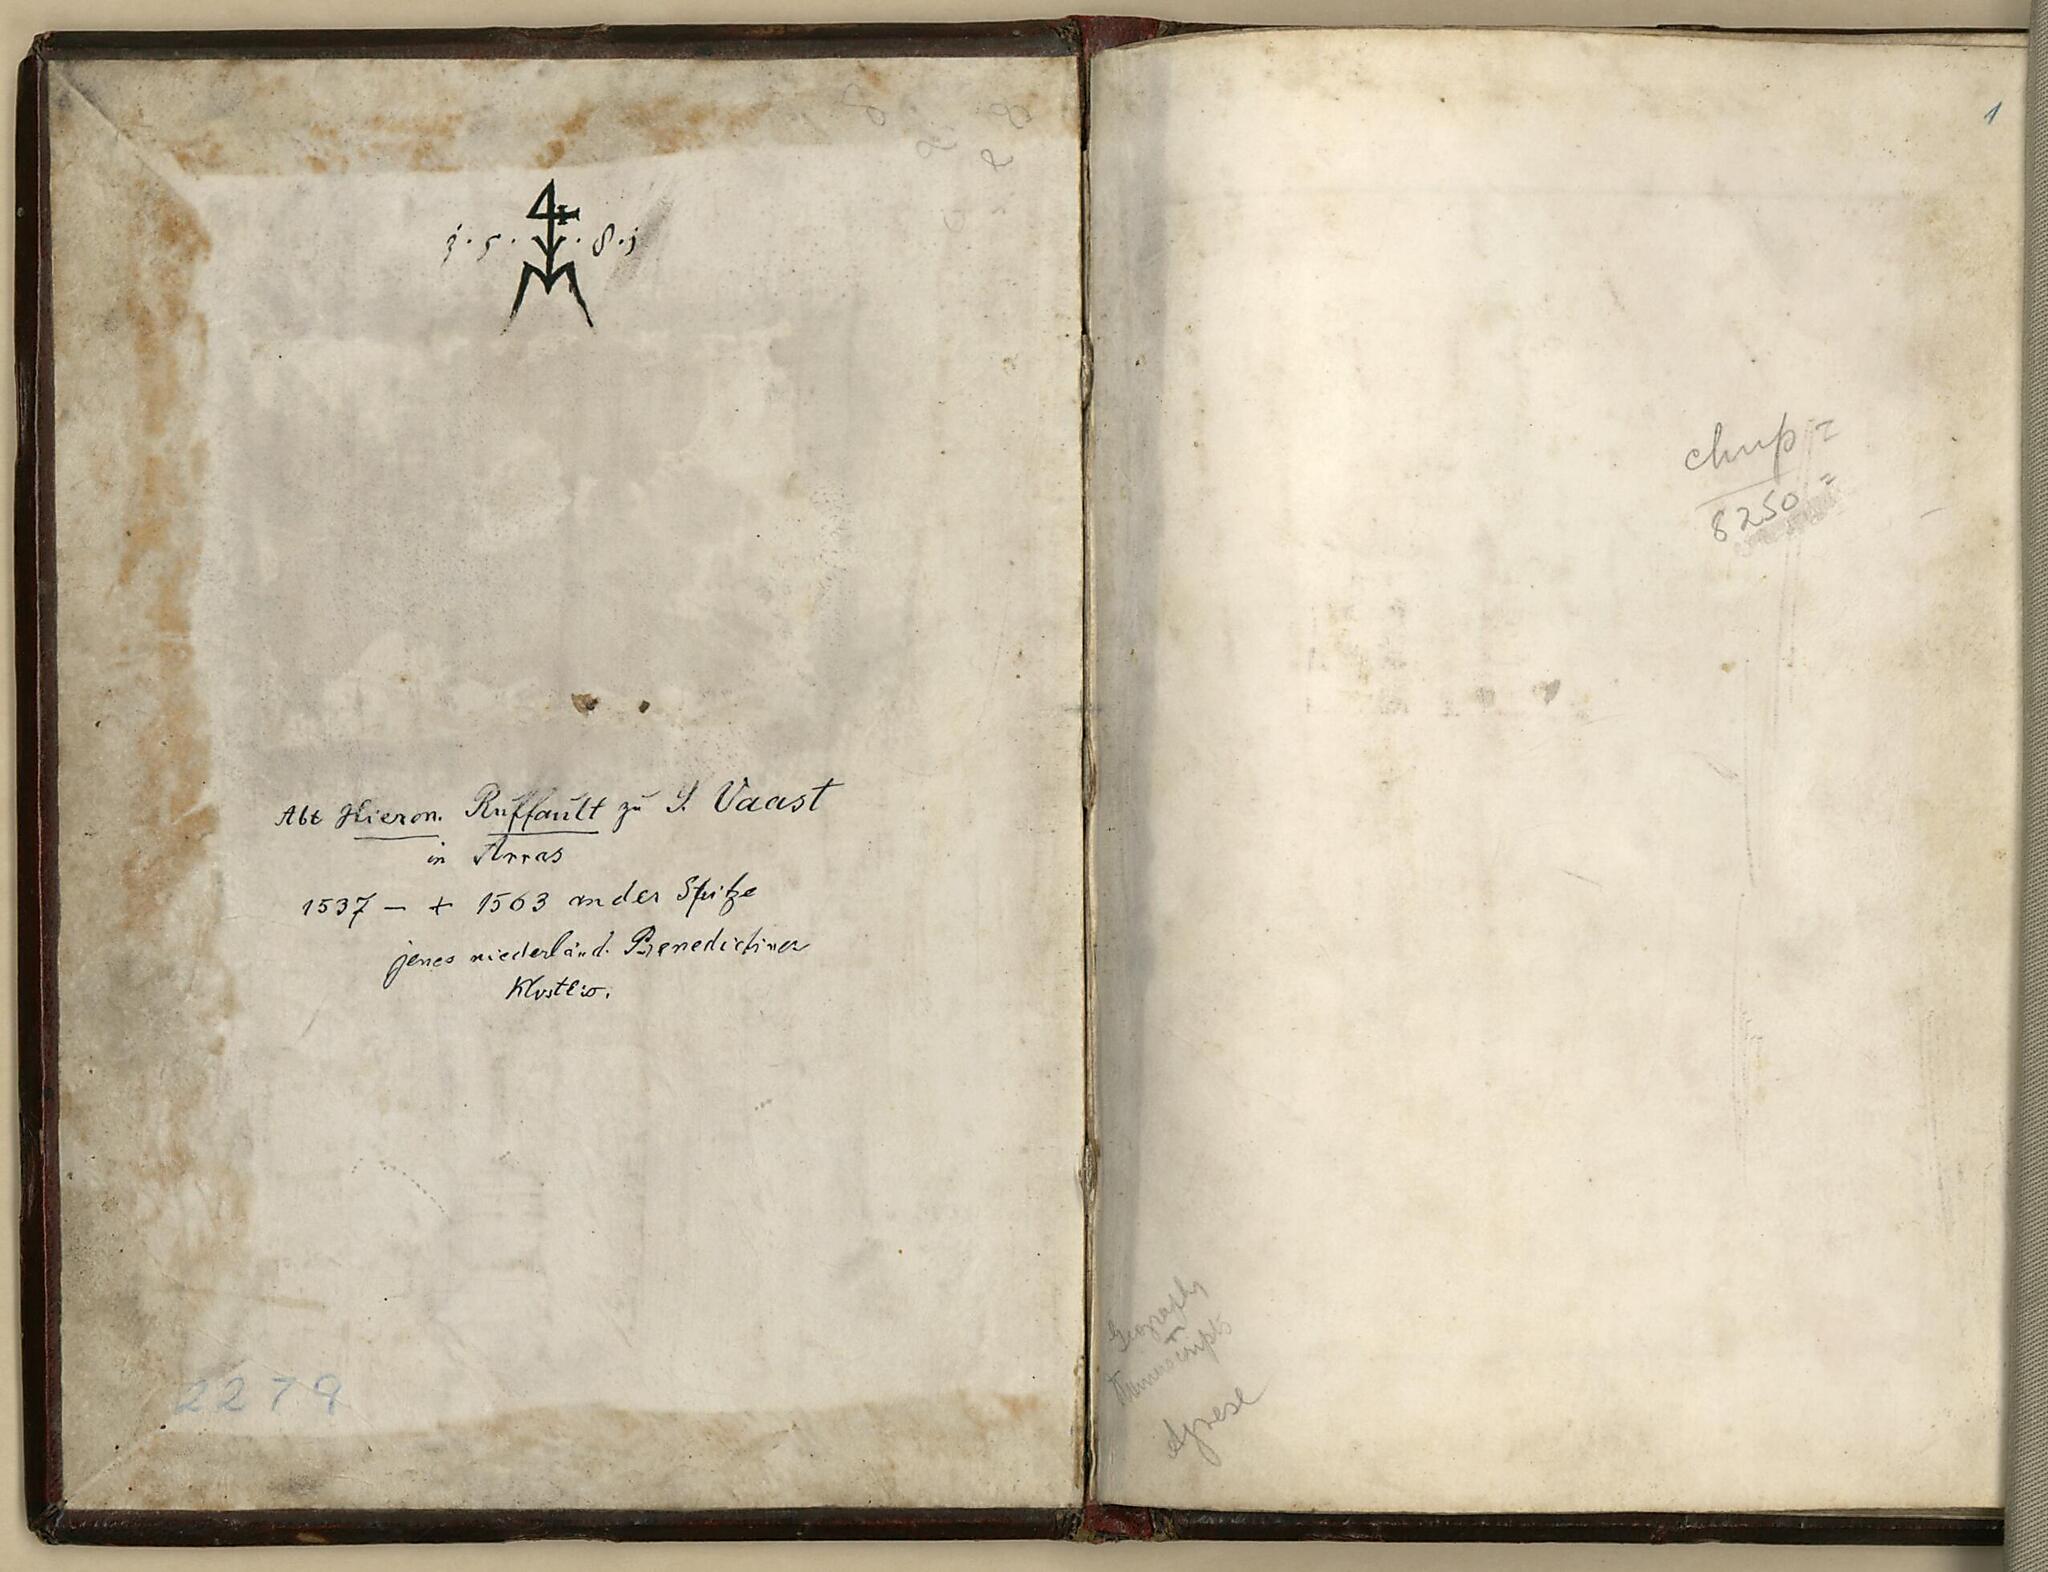 1 · 5 · · 8 · 1
Abt Hieron. Ruffault zu S. Vaast
in Arras
1537 – + 1563 an der Spitze
jenes niederländ. Benedictiner
2279
1
8250 =
Geography
Manuscripts
Agnese